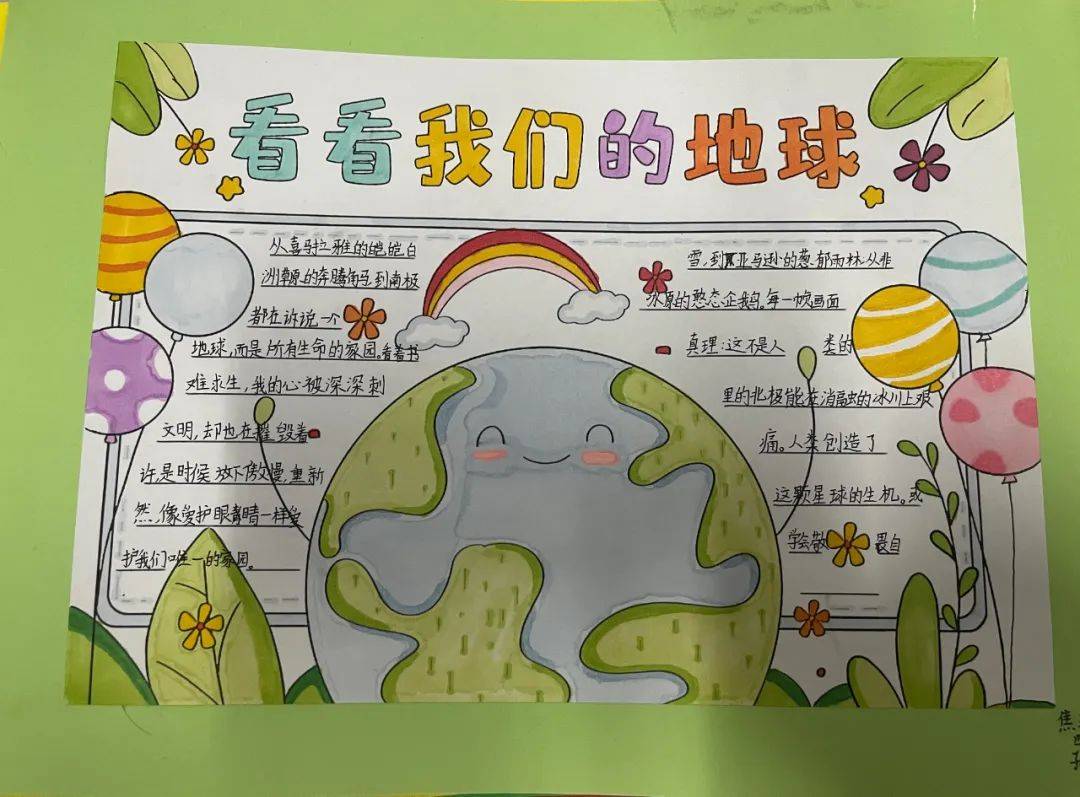 看看我们的地球
从喜马拉雅的皑皑白
雪,到亚马逊的葱郁雨林.从非
洲草原的奔腾角马到南极
冰原的憨态企鹅。每一帧画面
都在诉说一个
真理:这不是人 类的
地球,而是所有生命的家园。看着书
里的北极能在消融的冰川上艰
难求生,我的心被深深刺
痛。人类创造了
文明,却也在摧毁着
这颗星球的生机。或
许,是时候放下傲慢,重新
学会敬 畏自
然,像爱护眼睛一样爱
护我们唯一的家园。
焦